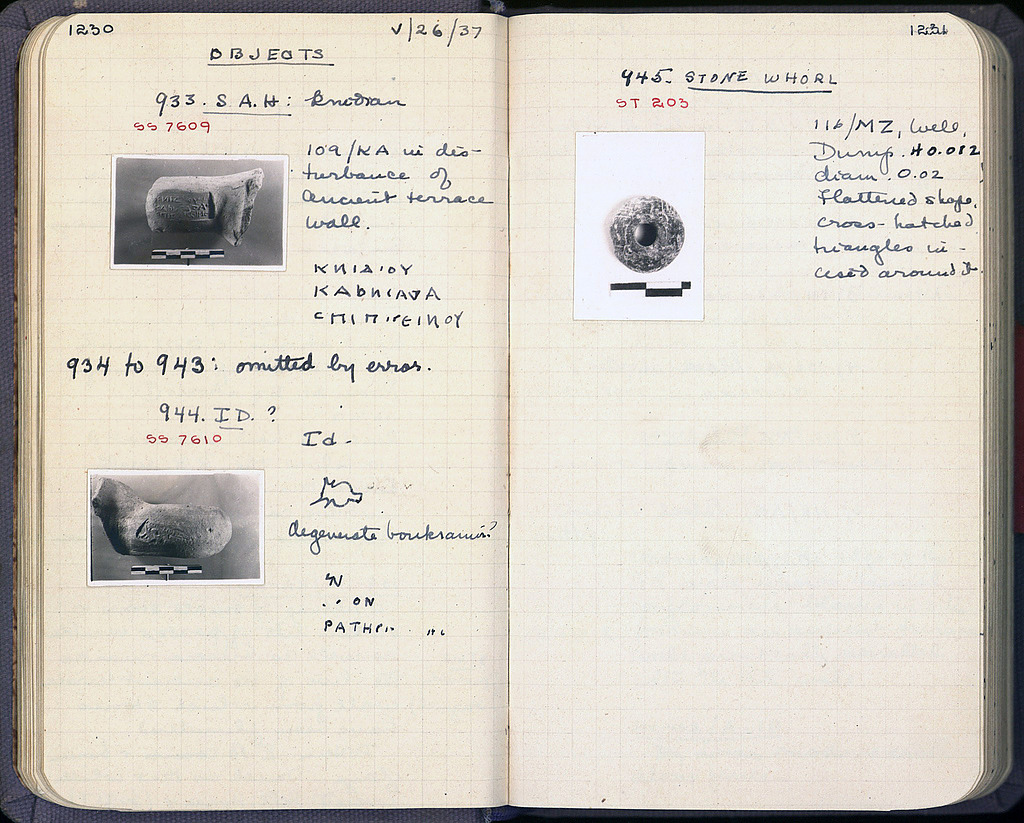 1230
V/26/37
OBJECTS
933. S A.H: Knidian
SS 7609
109/KA in dis-
turbance of
ancient terrace
wall.
ΚΝΙΔΙΟΥ
934 to 943: omitted by error.
944. ID. ?
SS 7610
Id.
degenerate boukranion?
Ν
. . ΟΝ
1231
945. STONE WHORL
ST 203
116/MZ, Well,
Dump. H 0.012
diam. 0.02
Flattened shape,
cross-hatched
triangles in-
cised around it.